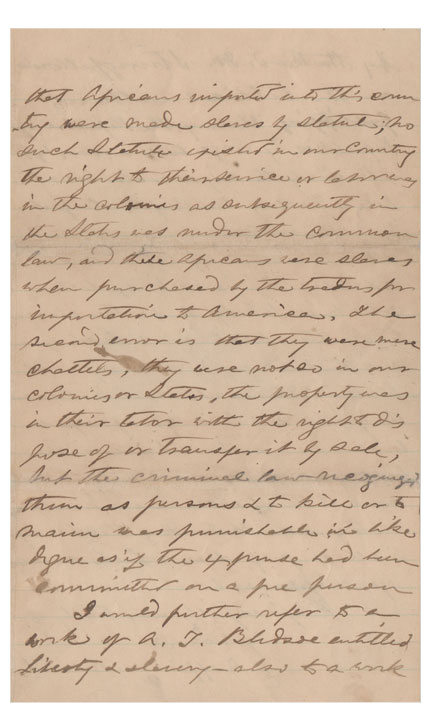 that Africans imported into this coun
try were made slaves by statute; no
such Statute existed in our Country
the right to their service or labor was
in the colonies as subsequently in
the States was under the common
law, and these Africans were slaves
when purchased by the traders for
importation to America. The
second error is that they were mere
chattels, they were not so in our
colonies or States, the property was
in their labor with the right to dis
pose of or transfer it by sale;
but the criminal law recognized
them as persons & to kill or to
maim was punishable in like
degree as if the expense had been
committed on a free person
I would further refer to a
work of A. T. Bledsoe entitled
Liberty & slavery - also to a work